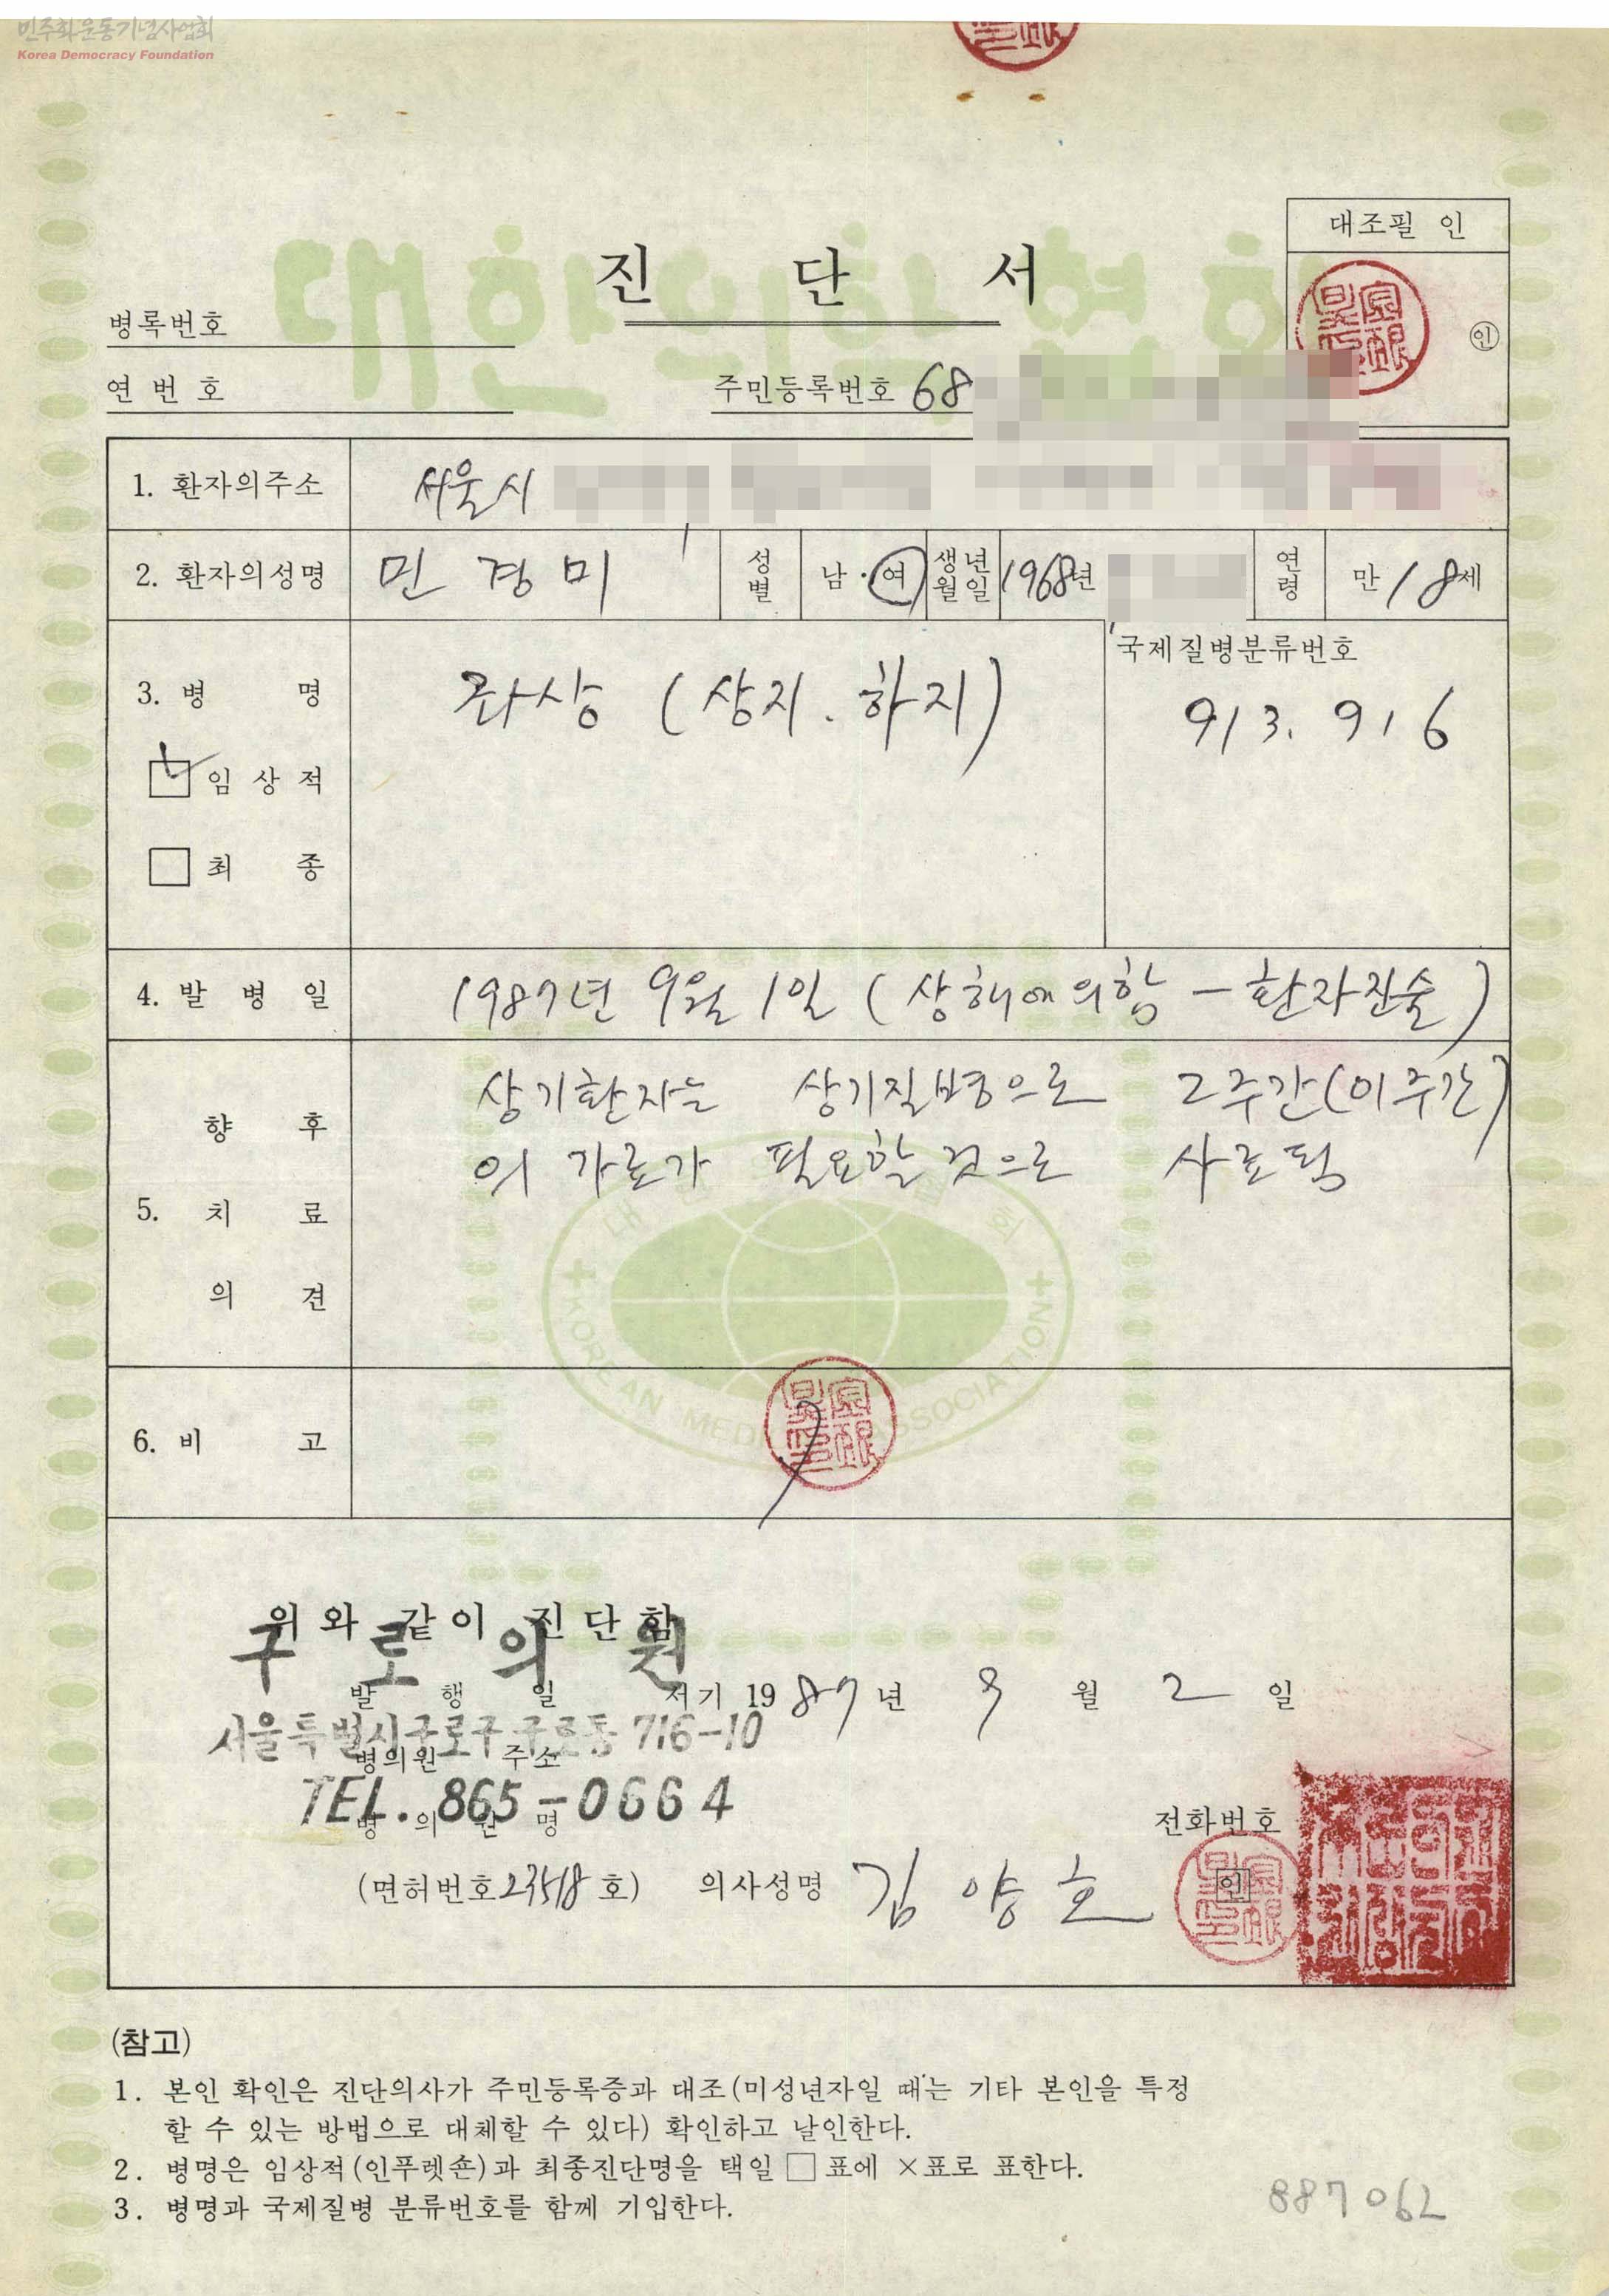 민주화운동기념사업회
Korea Democracy Foundation
대한의학협회
대조필 인
진 단 서
병록번호
인
연 번 호
주민등록번호 68
1. 환자의주소 서울시
2. 환자의성명 민경미 성별 남·여 생년월일 1968년 연령 만 18세
3. 병 명 좌상 (상지. 하지) 국제질병분류번호
913. 916
임상적
최 종
4. 발 병 일 1987년 9월 1일 (상해에 의함 - 환자진술)
5. 향 후 치 료 의 견
상기환자는 상기질병으로 2주간(이주간)
의 가료가 필요할것으로 사료됨
KOREAN MEDICAL ASSOCIATION
6. 비 고
위와 같이 진단함
구로의원
발 행 일 서기 1987년 9월 2일
서울특별시구로구 구로동 716-10
병의원 주소
TEL. 865-0664
병 의 원 명
전화번호
(면허번호23518호) 의사성명 김양호 인
(참고)
1. 본인 확인은 진단의사가 주민등록증과 대조(미성년자일 때는 기타 본인을 특정
할 수 있는 방법으로 대체할 수 있다) 확인하고 날인한다.
2. 병명은 임상적(인푸렛숀)과 최종진단명을 택일 □표에 ×표로 표한다.
3. 병명과 국제질병 분류번호를 함께 기입한다.
887062